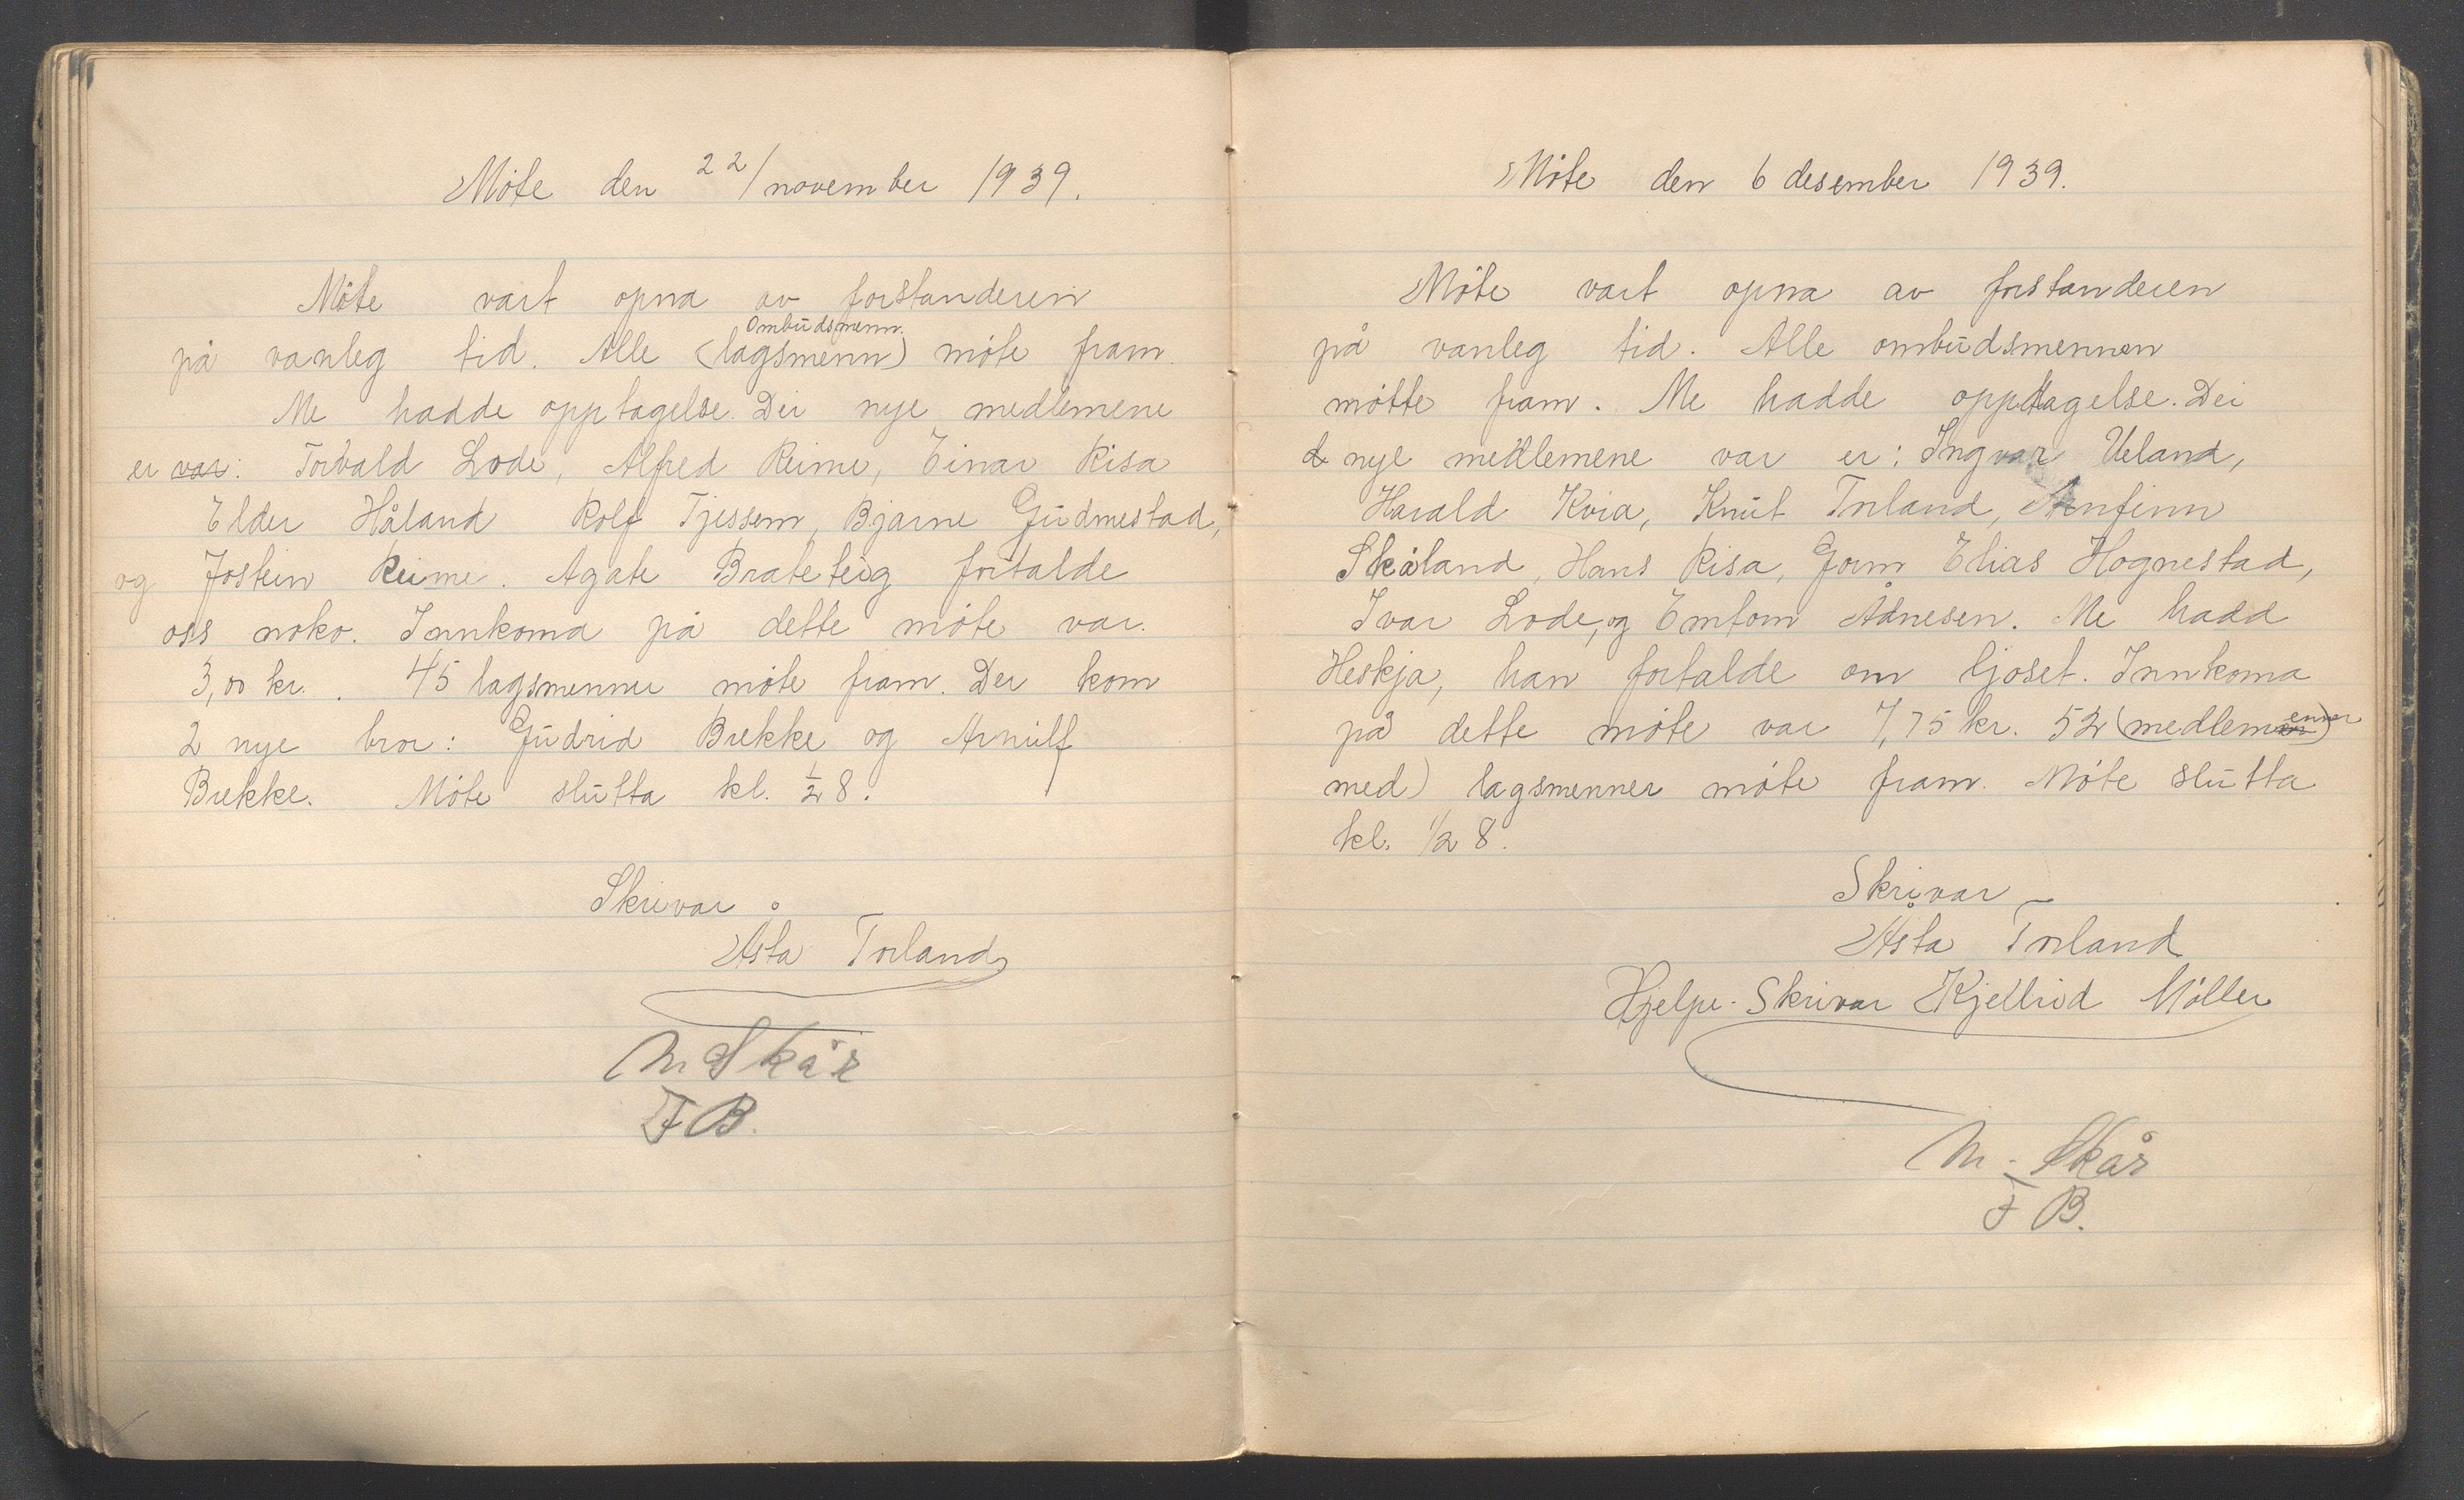 Møte den 22/november 1939.
Møte vart opna av forstanderen
Ombudsmenn.
på vanleg tid. Alle (lagsmenn) møte fram.
Me hadde opptagelse. Dei nye medlemene
er var: Torvald Lode, Alfred Reime, Einar Risa
Elder Håland Rolf Tjessem, Bjarne Gudmestad,
og Jostein Reime. Agate Brateteig fortalde
oss noko. Innkoma på dette møte var.
3,00 kr. . 45 lagsmenner møte fram. Der kom
2 nye bror: Gudrid Brekke og Arnulf
Brekke. Møte slutta kl. ½ 8.
Skrivar
Åsta Torland
M Skår
F B.
Møte den 6 desember 1939.
Møte vart opna av forstanderen
på vanleg tid. Alle ombudsmennen
møtte fram. Me hadde opptagelse. Dei
d nye medlemene var er: Ingvar Ueland,
Harald Kvia, Knut Torland, Arnfinn
Skåland, Hans Risa, Gorm Elias Hognestad,
Ivar Lode, og Emtom Ådnesen. Me hadd
Heskja, han fortalde om ljoset. Innkoma
på dette møte var 7,75 kr. 52 (medlemenner)
med) lagsmenner møte fram. Møte slutta
kl. 1/2 8.
Skrivar
Åsta Torland
Hjelpe-Skrivar Kjellrid Møller
M. Skår
F B.